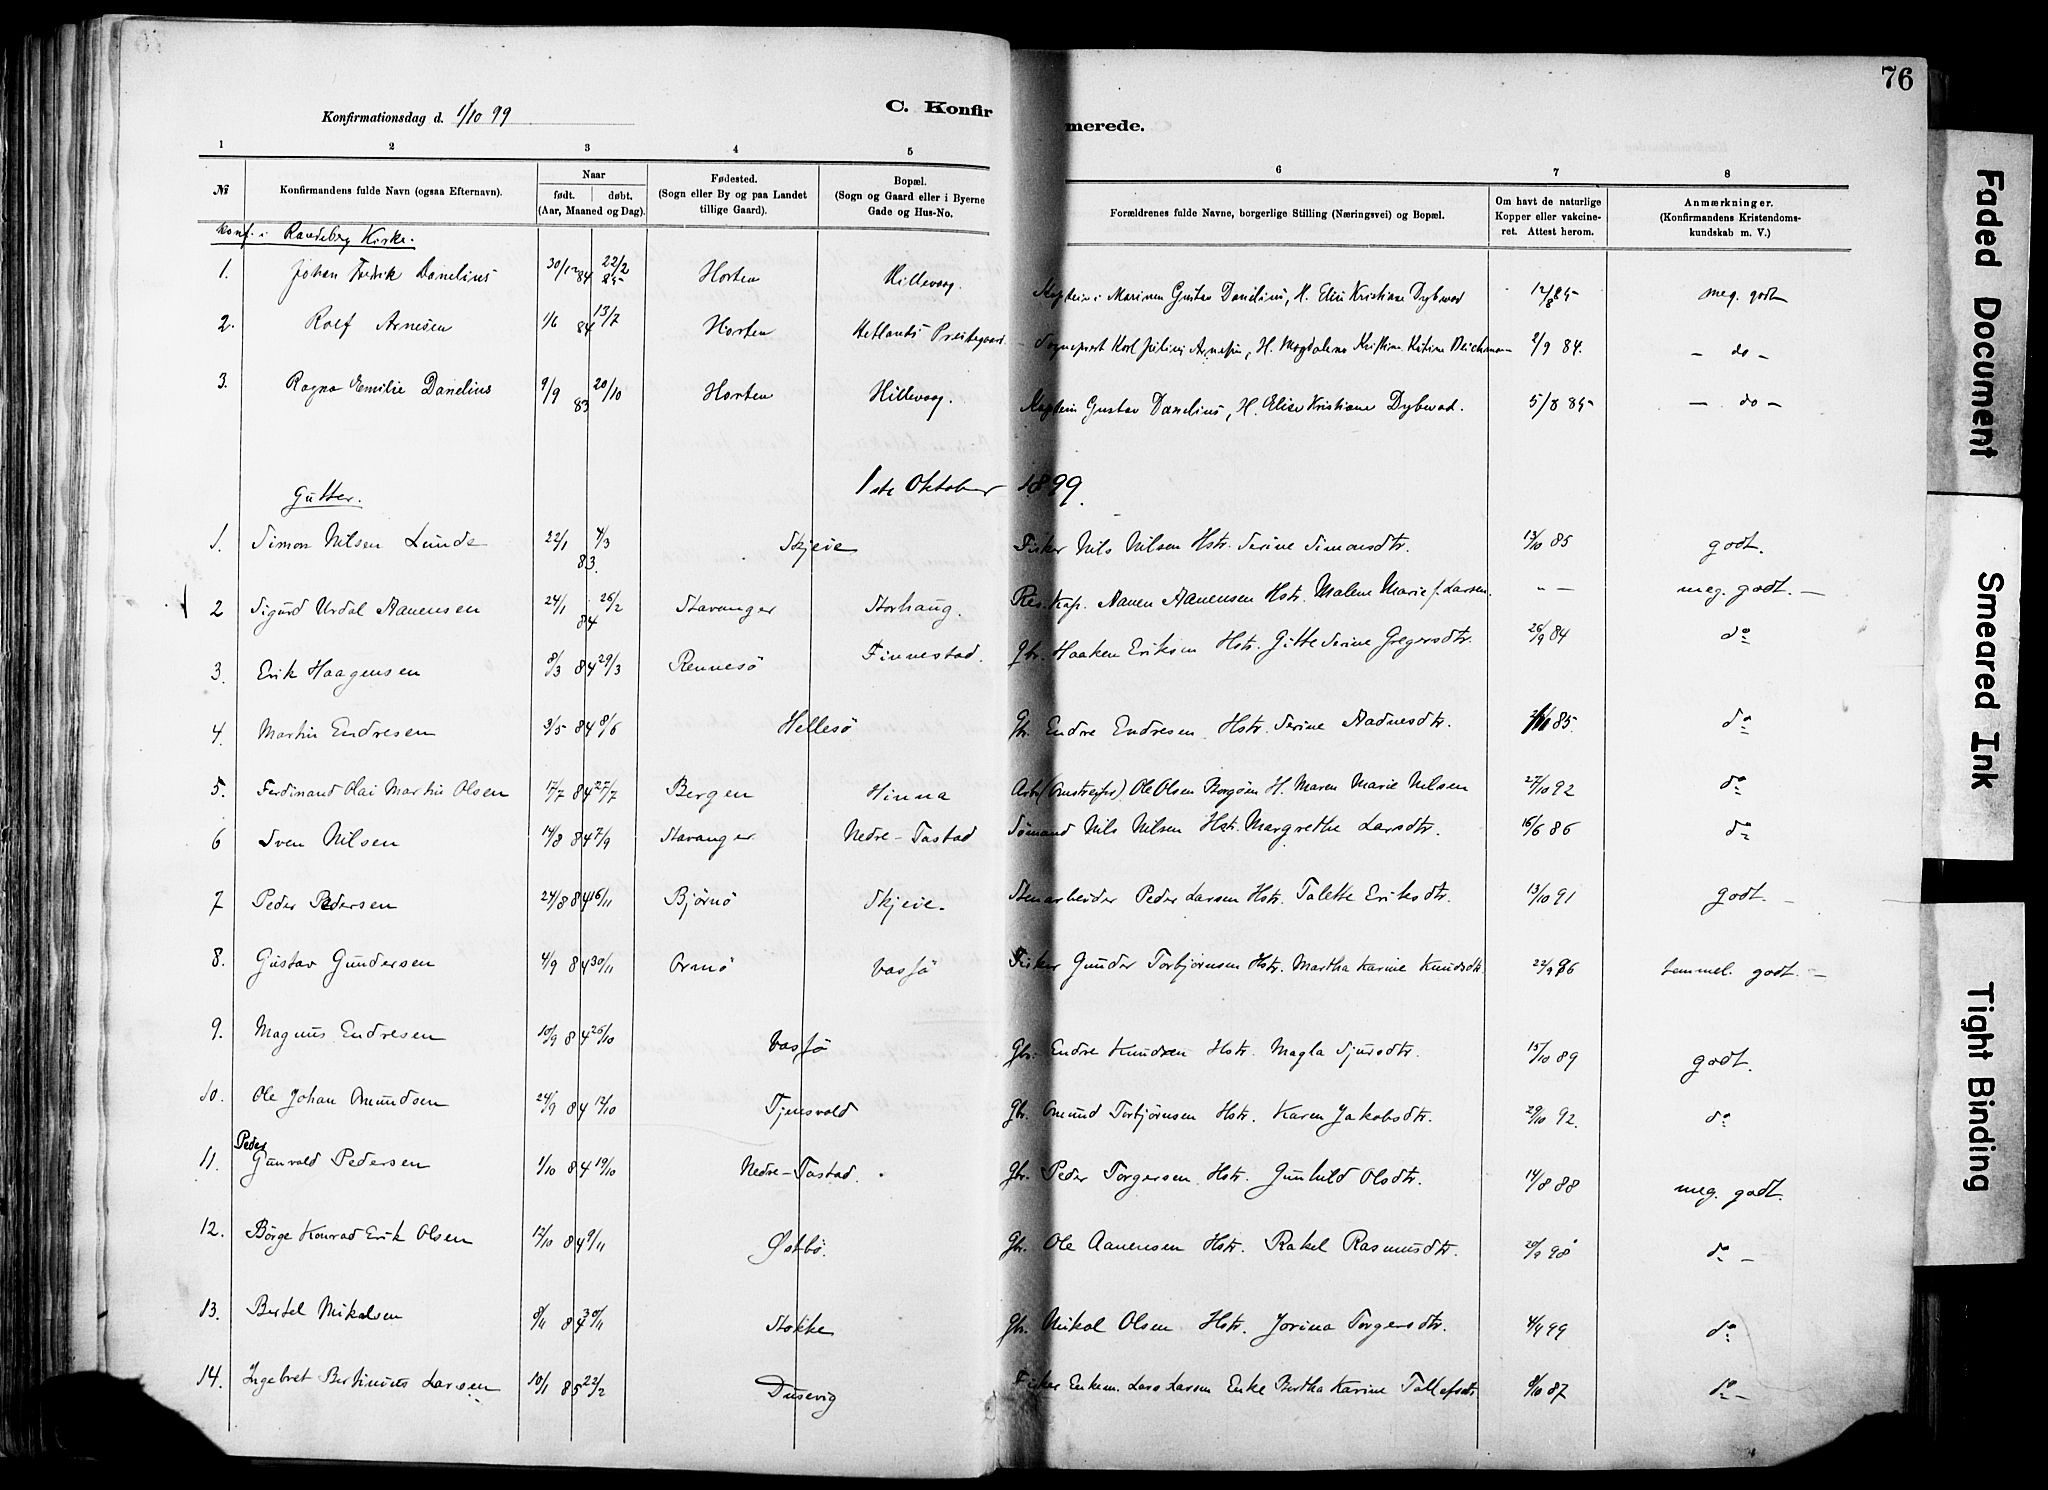 76
Konfirmationsdag d. 1/10 99 C. Konfirmerede.
1 2 3 4 5 6 7 8
№ Konfirmandens fulde Navn (ogsaa Efternavn). Naar født. døbt. (Aar, Maaned og Dag). Fødested. (Sogn eller By og paa Landet tillige Gaard). Bopæl. (Sogn og Gaard eller i Byerne Gade og Hus-No. Forældrenes fulde Navne, borgerlige Stilling (Næringsvei) og Bopæl. Om havt de naturlige Kopper eller vakcineret. Attest herom. Anmærkninger. (Konfirmandens Kristendomskundskab m. V.)
Konf. i Randeberg Kirke.
1. Johan Fredrik Danelius 30/12 84 22/2 85 Horten Hillevaag. Kaptein i Marinen Gustav Danelius, H. Elise Kristiane Dybwad 12/8 85 meg. godt
2. Rolf Arnesen 1/6 84 13/7 Horten Hetlands Prestegaard Sogneprest Karl Julius Arnesen, H. Magdalena Kristine Deichman 2/9 84. — do —
3. Ragna Emilie Danelius 9/9 83 20/10 Horten Hillevaag. Kaptein Gustav Danelius, H. Elise Kristiane Dybwad. 5/8 85 — do —
Gutter. 1ste Oktober 1899.
1. Simon Nilsen Lunde 22/1 83. 4/3 Skjeie Fisker Nils Nilsen Hstr. Serine Simonsdtr. 13/10 85 godt.
2 Sigurd Urdal Aanensen 24/1 84 26/2 Stavanger Storhaug. Res. Kap. Aanen Aanensen Hstr. Malene Marie f. Larsen. - — meg. godt. —
3. Erik Haagensen 8/3 84 29/3 Rennesö Finnestad. Gbr. Haaken Eriksen Hstr. Gitte Serine Gregersdtr. 26/9 84 do
4. Martin Endresen 3/5 84 8/6 Hellesö Gbr. Endre Endresen Hstr. Serine Aadnesdtr. 85. do
5. Ferdinand Olai Martin Olsen 17/7 84 27/7 Bergen Hinna Arb. (Omstreifer) Ole Olsen H. Maren Marie Nilsen 27/10 92 do
6 Sven Nilsen 14/8 84 7/9 Stavanger Nedre-Tastad Sömand Nils Nilsen Hstr. Margrethe Larsdtr. 16/6 86 do
7 Peder Pedersen 24/8 84 16/11 Bjørnö Skjeie. Stenarbeider Peder Larsen Hstr. Talette Eriksdtr. 13/10 91 godt. —
8. Gustav Gundersen 4/9 84 30/11 Ormö Vassö Fisker Gunder Torbjørnsen Hstr. Martha Karine Knudsdtr. 22/9 96 temmel. godt. —
9. Magnus Endresen 10/9 84 26/10 Vassö Gbr. Endre Knudsen Hstr. Magla Sjursdtr. 15/10 89 godt.
10. Ole Johan Omundsen 24/9 84 12/10 Tjensvold Gbr. Omund Torbjørnsen Hstr. Karen Jakobsdtr. 29/10 92. do
11. Peder Gunvald Pedersen 1/10 84 19/10 Nedre-Tastad. Gbr. Peder Torgersen Hstr. Gunhild Olsdtr. 14/8 88 meg. godt.
12. Börge Konrad Erik Olsen 12/10 84 9/11 Østbö. Gbr. Ole Aanensen Hstr. Rakel Rasmusdtr. 20/9 98 do —
13. Bertel Mikalsen 8/11 84 30/11 Stokke Gbr. Mikal Olsen Hstr. Jorina Torgersdtr. 4/9 99 do
14. Ingebret Bertinius Larsen 10/1 85 22/2 Dusevig Fisker Enkem. Lars Larsen Enke Bertha Karine Tollefsdtr. 8/10 87 do —
Faded Document
Smeared Ink
Tight Binding